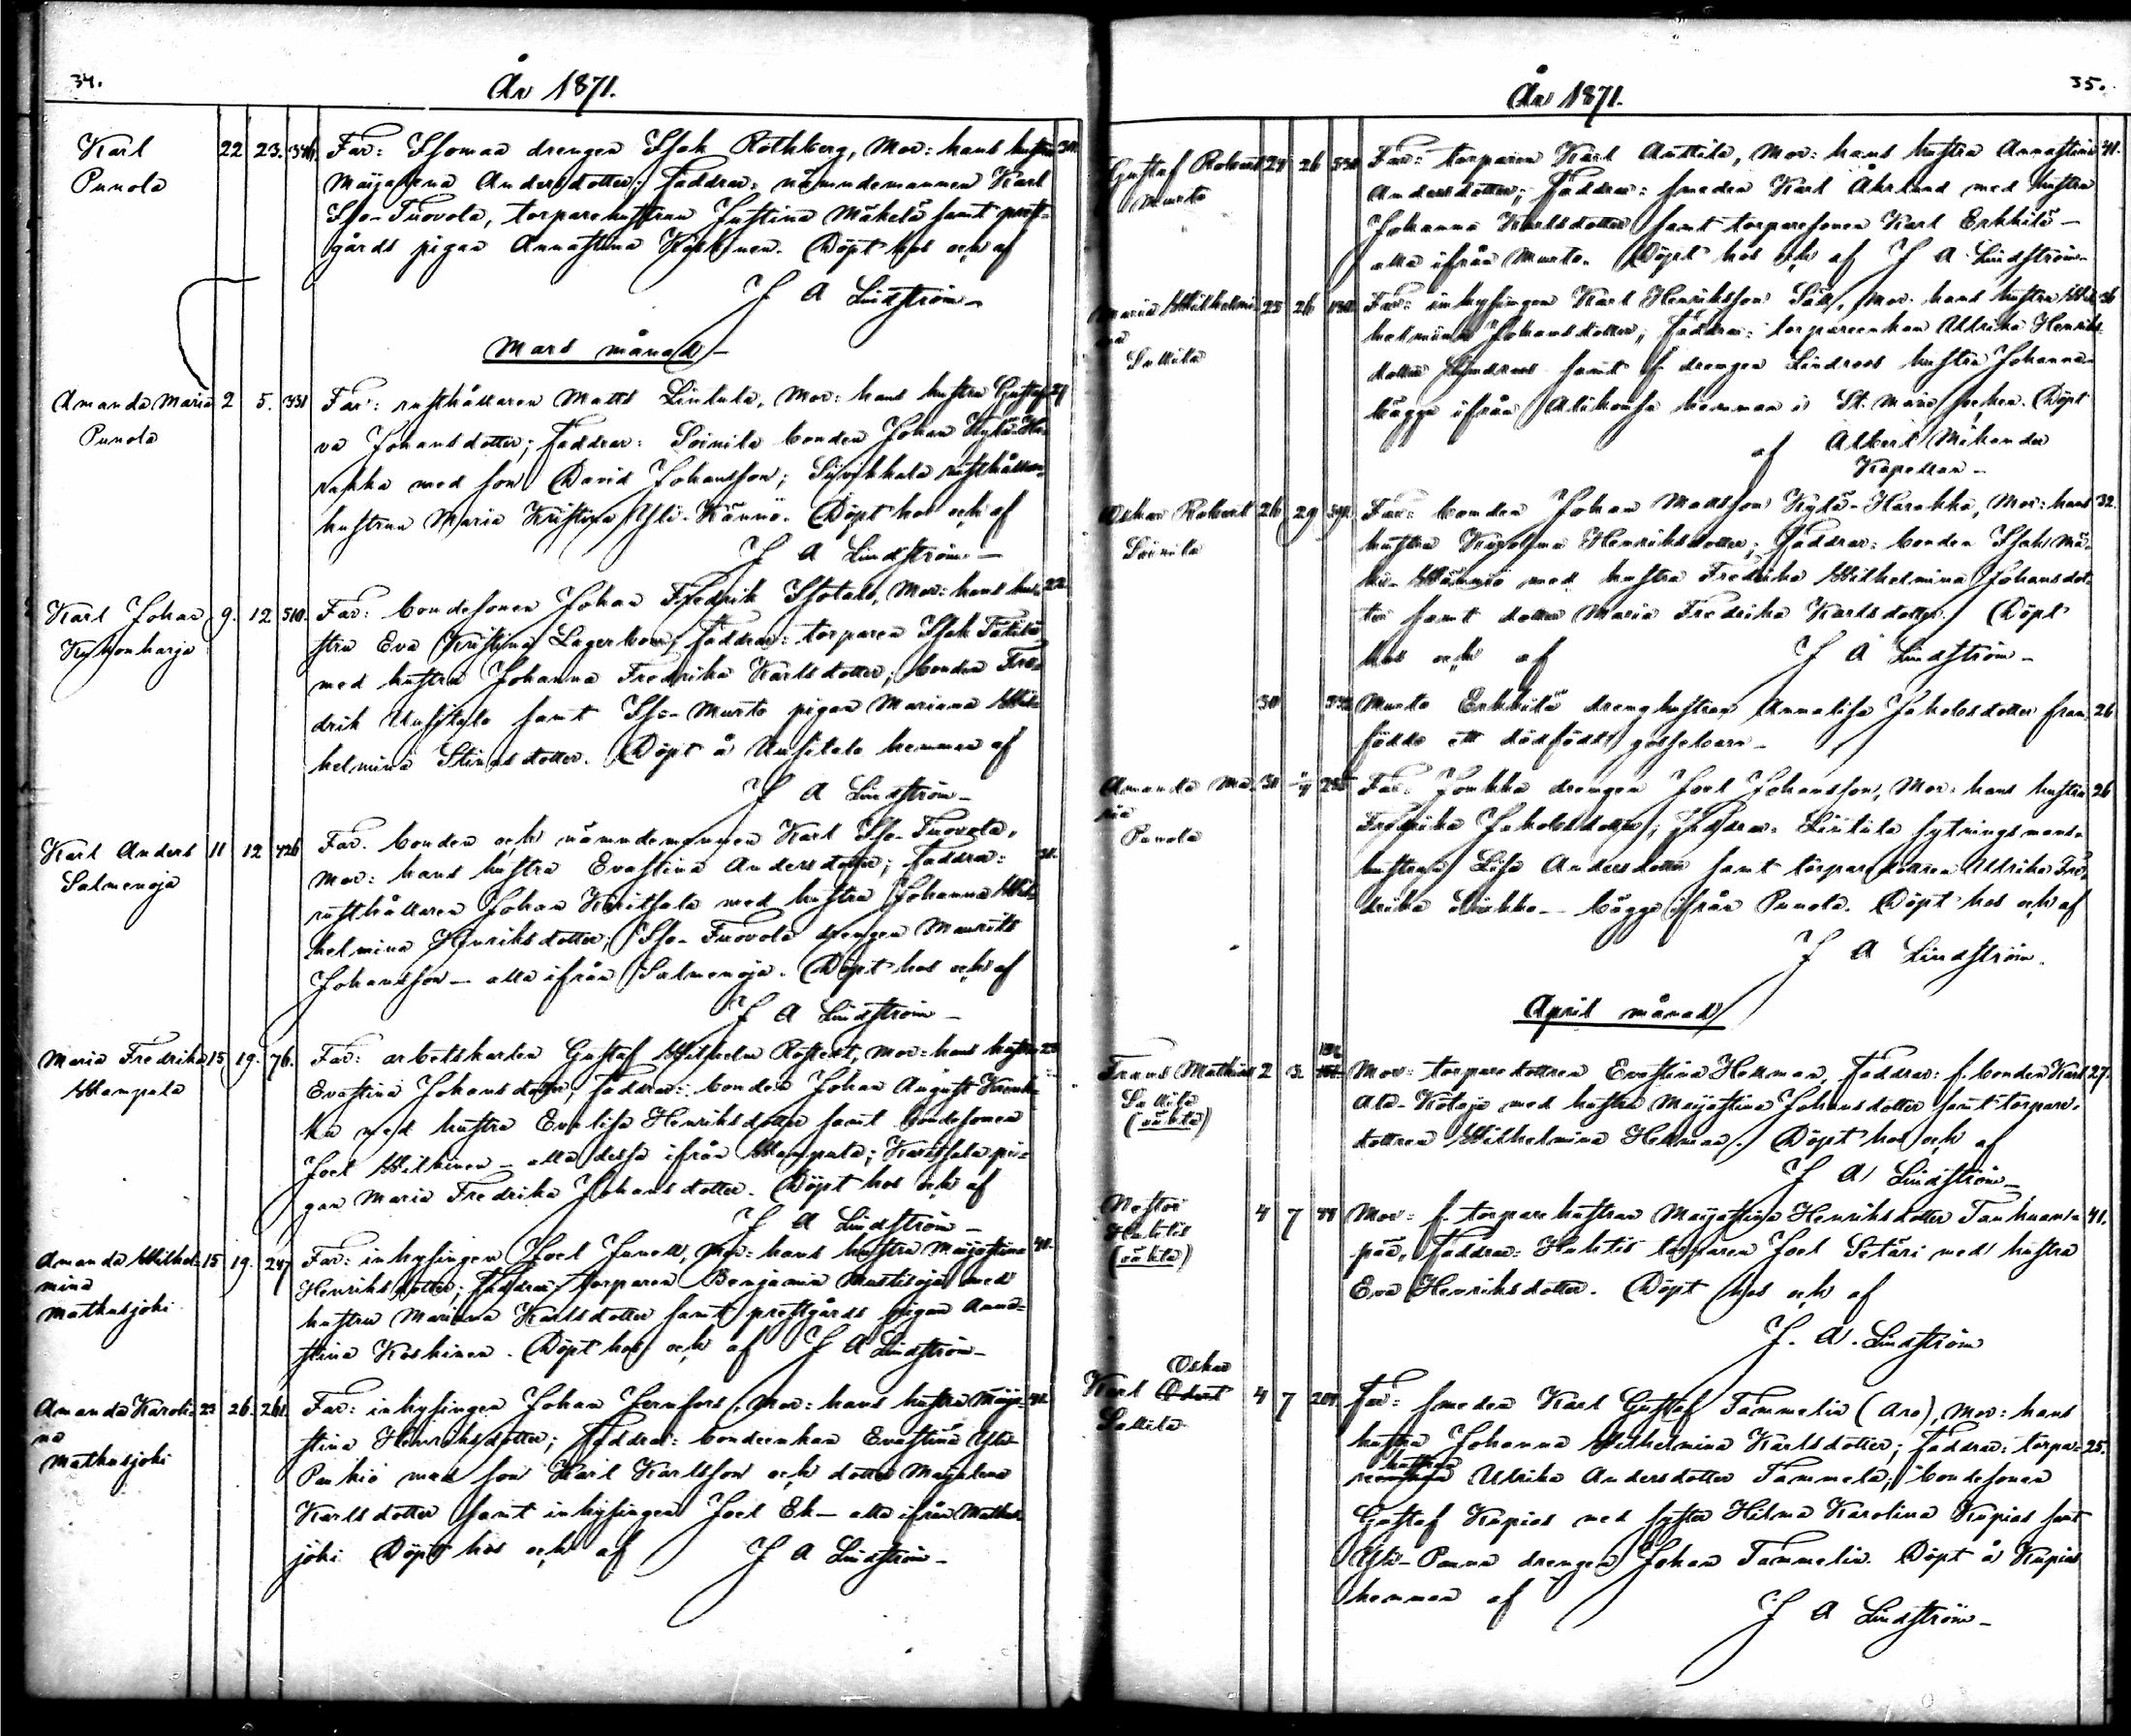 34.
År 1871.
Karl 22 23. Far: Isomaa drengen Isak Rothberg, Mor: hans hustru
Punola
Maijalena Andersdotter; Faddrar: nämndemannen Karl
Iso-Tuovola, torparehustrun Justina Mäkelä samt prest-
gårds pigan Annastina Koskinen. Döpt hos och af
J A Lindström
Mars månad
Amanda Maria 2 5. Far: rusthållaren Matts Liutula, Mor: hans hustru Gusta-
Punola
va Johansdotter; Faddrar: Soinila bonden Johan Kylä-Ha-
rakka med son David Johansson; rusthållare-
hustrun Maria Kristina Yli-Kännö. Döpt hos och af
J A Lindström
Karl Johan 9. 12 510. Far: bondesonen Johan Fredrik Isotalo, Mor: hans hu- 22
Kyhonharja
stru Eva Kristina Lagerbom, Faddrar: torparen Isak
med hustru Johanna Fredrika Karlsdotter, bonden Fre-
drik Uusitalo samt Iso-Murto pigan Mariana Wil-
helmina Stinasdotter. Döpt å Uusitalo hemman af
J A Lindström
Karl Anders 11 12 426 Far: bonden och nämndemannen Karl Iso-Tuovola,
Salmenoja
Mor: hans hustru Evastina Andersdotter; Faddrar:
rusthållaren Johan Karitsala med hustru Johanna Wil-
helmina Henriksdotter; Iso-Tuovola drengen Maurits
Johansson - alla ifrån Salmenoja. Döpt hos och af
J A Lindström
Maria Fredrika 15 19. 76. Far: arbetskarlen Gustaf Wilhelm Rostedt, Mor: hans hustru
Wampula
Evastina Johansdotter, Faddrar: bonden Johan August
med hustru Evalisa Henriksdotter samt bondesonen
Joel Wilkinen - alla dessa ifrån Wampula; Karitsala pi-
gan Maria Fredrika Johansdotter. Döpt hos och af
J A Lindström
Amanda Wilhel- 15 19. 247 Far: inhysingen Joel Junell, Mor: hans hustru Maijastina 41.
mina
Mathusjoki
Henriksdotter; Faddrar: torparen Benjamin Mustioja med
hustru Mariana Karlsdotter samt prestgårds pigan Anna-
stina Koskinen. Döpt hos och af J A Lindström
Amanda Karoli- 22 26. 261. Far: inhysingen Johan Jernfors, Mor: hans hustru Maija-
na
Mathusjoki
stina Henriksdotter; Faddrar: bondeenkan Evastina Yli-
Penkiö med son Karl Karlsson och dotter Maijalena
Karlsdotter samt inhysingen Joel Ek - alla ifrån Mathus-
joki Döpt hos och af J A Lindström
År 1871.
35.
Gustaf Robert 24 26 Far: torparen Karl Anttila, Mor: hans hustru Annastina 41.
Murto
Andersdotter; Faddrar: smeden Karl Åkerlund med hustru
Johanna Karlsdotter samt torparesonen Karl Erkkilä -
alla ifrån Murto. Döpt hos och af J A Lindström
Maria Wilhelmi- 25 26 Far: inhysingen Karl Henriksson Säll, Mor: hans hustru Wil- 36
na
Sallila
helmina Johansdotter; Faddrar: torpareenkan Ulrika Henriks-
dotter Lindroos samt f. drengen Lindroos hustru Johanna
bägge ifrån hemman i St. Marie socken. Döpt
af Albert Mikander
Kapellan
Oskar Robert 26 29 Far: bonden Johan Mattsson Kylä-Harakka, Mor: hans 32.
Soinila
hustru Karolina Henriksdotter; Faddrar: bonden Isak Mä-
ki-Männiö med hustru Fredrika Wilhelmina Johansdot-
ter samt dotter Maria Fredrika Karlsdotter. Döpt
hos och af J A Lindström
30 Murto Erkkilä drenghustrun Annalisa Jakobsdotter fram- 26
födde ett dödfödt gossebarn
Amanda Ma- 30 Far: Joukka drengen Joel Johansson, Mor: hans hustru 26
ria
Punola
Fredrika Jakobsdotter; Faddrar: Liutula sytningsmans-
hustrun Lisa Andersdotter samt torparedottren Ulrika Fre-
drika - bägge ifrån Punola. Döpt hos och af
J A Lindström.
April månad
Frans Mathias 2 3. Mor: torparedottren Evastina Hellman, Faddrar: f. bonden Karl 27.
Sallila
(oäkta)
Ala-Kotoja med hustru Maijastina Johansdotter samt torpare-
dottren Wilhelmina Hellman. Döpt hos och af
J A Lindström
Nestor 4 7 Mor: f. torparehustrun Maijastina Henriksdotter Tanhuan- 41.
Huhtis
(oäkta)
pää, Faddrar: Huhtis torparen Joel Setäri med hustru
Eva Henriksdotter. Döpt hos och af
J. A. Lindström
Oskar
Karl 4 7 Far: smeden Karl Gustaf Tammelin (Aro), Mor: hans
Sallila
hustru Johanna Wilhelmina Karlsdotter; Faddrar: torpa- 25.
hustrun
Ulrika Andersdotter Tammela; bondesonen
Gustaf Kupias med syster Hilma Karolina Kupias samt
Yli-Panna drengen Johan Tammelin. Döpt å Kupias
hemman af J A Lindström